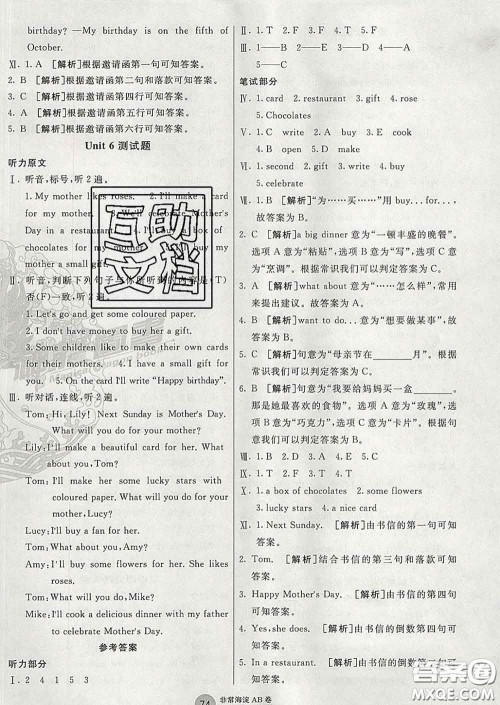 birthday? —My birthday is on the fifth of
October.
Ⅺ. 1. A [解析]根据邀请函第一句可知答案。
2. B [解析]根据邀请函第二句和落款可知答案。
3. C [解析]根据邀请函第四行可知答案。
4. A [解析]根据邀请函第五行可知答案。
5. B [解析]根据邀请函第六行可知答案。
Unit 6 测试题
听力原文
Ⅰ. 听音,标号,听2遍。
1. My mother likes roses. 2. I'll make a card
for my mother. 3. We'll celebrate Mother's
Day in a restaurant. 4.
for my mother. 5. I'll
Ⅱ. 听音,判断下列句子与你所听到的内容是(T)
否(F)一致,听2遍。
1. Let's go and get some coloured paper.
2. I don't have money to buy her a gift.
3. Some children like to make their own cards
for their mothers. 4. I have a small gift for
you. 5. On the card I'll write "Happy birthday".
Ⅲ. 听对话,连线,听2遍。
Tom: Hi, Lily! Next Sunday is Mother's Day.
What will you do for your mother?
Lily: I'll make a beautiful card for her. What
about you, Tom?
Tom: I'll make some lucky stars with
coloured paper. What will you do for your
mother, Lucy?
Lucy: I'll buy a fan for her.
Tom: What about you, Amy?
Amy: I'll buy some flowers for her. She likes
roses.
Tom: What will you do, Mike?
Mike: I'll cook a delicious dinner with my father
to celebrate Mother's Day.
参考答案
听力部分
Ⅰ. 2 4 1 5 3
Ⅱ. 1. T 2. F 3. T 4. T 5. F
Ⅲ. 1——B 2——E 3——A 4——D
5——C
笔试部分
Ⅳ. 1. card 2. restaurant 3. gift 4. rose
5. Chocolates
Ⅴ. 1. C 2. A 3. B 4. B 5. A
Ⅵ. 1. second 2. gift 3. write 4. buy
5. celebrate
Ⅶ. 1. B [解析]"为……买……"用buy...for...,
故答案为B。
2. C [解析]a big dinner意为"一顿丰盛的晚餐"。
选项A意为"粘贴",选项B意为"写",选项C意
为"烹调"。根据常识我们可以判定答案为C。
3. A [解析]what about意为"……怎么样",常用
来提出建议。故答案为A。
4. B [解析]want to do...意为"想要做某事",故
答案为B。
5. C [解析]句意为"母亲节在________月"。根据
常识可以判定答案为C。
6. B [解析]句意为"我要给妈妈买一盒________,
那是她最喜欢的食物"。选项A意为"玫瑰",选
项B意为"巧克力",选项C意为"卡片"。根据
句意我们可以判定答案为B。
Ⅷ. 1. C 2. D 3. B 4. A 5. E
Ⅸ. 1. T 2. F 3. F 4. T 5. T
Ⅹ. 1. a box of chocolates 2. some flowers
3. lucky stars 4. a nice card
Ⅺ. 1. Next Sunday. [解析]由书信的第一句可知
答案。
2. Tom. [解析]结合书信的第三句和落款可知
答案。
3. Happy Mother's Day. [解析]由书信的第四句可
知答案。
4. Yes, she does. [解析]由书信的倒数第四句可
知答案。
5. Yes, he will. [解析]由书信的倒数第二句可知
答案。
74 非常海淀 AB 卷
互助
文档
MXQE.COM